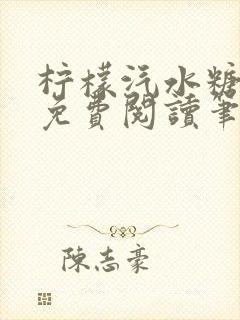 柠檬汽水糖
免費閱讀筆
陳志豪